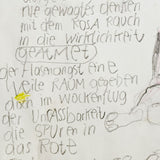 nie gewagtes damfes
mit dem ROSA RAUCH
in die wirklichkeit
GEATMET
der Harmonost eine
Weile RAUM gegeben
dann im Wockenflug
der UnfASSbarkeit
die SPUren in
das Rote